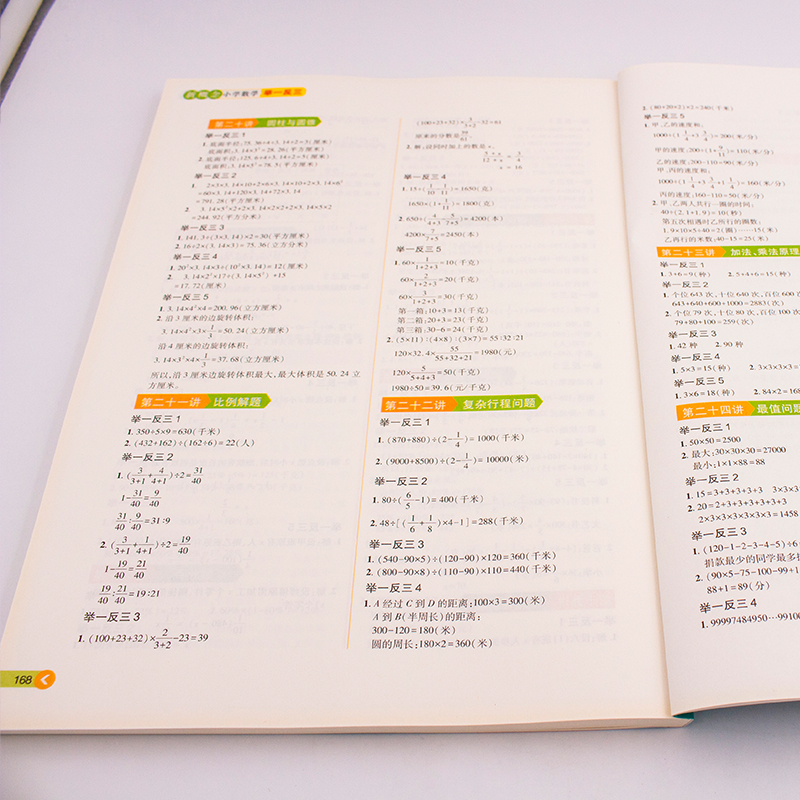 新概念 小学数学 举一反三
第二十讲 圆柱与圆锥
举一反三 1
1. 底面半径:75.36÷4÷3.14÷2=3(厘米)
底面面积:3.14×3²=28.26(平方厘米)
2. 底面半径:125.6÷4÷3.14÷2=5(厘米)
底面面积:3.14×5²=78.5(平方厘米)
举一反三 2
=791.28(平方厘米)
=244.92(平方分米)
举一反三 3
1. 141.3÷(3×3.14)×2=30(平方厘米)
2. 16÷2×(3.14×3)=75.36(立方分米)
举一反三 4
1. 20²×3.14×3÷(10²×3.14)=12(厘米)
=17.72(厘米)
举一反三 5
1. 3.14×4²×4=200.96(立方厘米)
2. 沿 3 厘米的边旋转体积:
3.14×4²×3×1/3=50.24(立方厘米)
沿 4 厘米的边旋转体积:
3.14×3²×4×1/3=37.68(立方厘米)
所以,沿 3 厘米边旋转体积最大,最大体积是 50.24 立
方厘米。
第二十一讲 比例解题
举一反三 1
1. 350÷5×9=630(千米)
2. (432+162)÷(162÷6)=22(人)
举一反三 2
1. (3/(3+1)+4/(4+1))÷2=31/40
1-31/40=9/40
31/40:9/40=31:9
2. (3/(3+1)+1/(4+1))÷2=19/40
1-19/40=21/40
19/40:21/40=19:21
举一反三 3
1. (100+23+32)×2/(3+2)-23=39
168
(100+23+32)×3/(3+2)-32=61
原来的分数是39/61
2. 解:设同时加上的数是 x。
x = 16
举一反三 4
1. 15÷(1/10-1/11)=1650(克)
1650×(1+1/10)=1800(克)
2. 650÷(4/5-5/7)
4200×7/(7+5)=2450(本)
举一反三 5
1. 60×1/(1+2+3)=10(千克)
60×2/(1+2+3)=20(千克)
60×3/(1+2+3)=30(千克)
第一箱:10+3=13(千克)
第二箱:20+3=23(千克)
第三箱:30-6=24(千克)
2. (5×11):(4×8):(3×7)=55:32:21
120×32.4×55/(55+32+21)=1980(元)
120×5/(5+4+3)=50(千克)
1980÷50=39.6(元/千克)
第二十二讲 复杂行程问题
举一反三 1
1. (870+880)÷(2-1/4)=1000(千米)
2. (9000+8500)÷(2-1/4)=10000(米)
举一反三 2
1. 80÷(6/5-1)=400(千米)
2. 48÷[(1/6+1/8)×4-1]=288(千米)
举一反三 3
1. (540-90×5)÷(120-90)×120=360(千米)
2. (800-90×8)÷(110-90)×110=440(千米)
举一反三 4
1. A 经过 C 到 D 的距离:100×3=300(米)
A 到 B(半周长)的距离:
300-120=180(米)
圆的周长:180×2=360(米)
2. (80+20×2)×2=240(千米)
举一反三 5
1. 甲、乙的速度和:
甲的速度:
乙的速度:200-110=90(米/分)
甲、丙的速度和:
丙的速度:160-110=50(米/分)
2. 甲、乙两人共行一圈的时间:
40÷(2.1+1.9)=10(秒)
第五次相遇时乙所行的圈数:
1.9×10×5÷40=2(圈)……15(米)
乙再行的米数:40-15=25(米)
第二十三讲 加法、乘法原理
举一反三 1
1. 3+6=9(种) 2. 5+4+6=15(种)
举一反三 2
1. 个位 643 次,十位 640 次,百位 600
643+640+600+1000=2883(次)
2. 个位 79 次,十位 80 次,百位 100
79+80+100=259(次)
举一反三 3
1. 42 种 2. 90 种
举一反三 4
1. 5×3=15(种) 2. 3×3×3×3=
举一反三 5
1. 3×6=18(种) 2. 84×2=168
第二十四讲 最值问题
举一反三 1
1. 50×50=2500
2. 最大:30×30×30=27000
最小:1×1×88=88
举一反三 2
1. 15=3+3+3+3+3 3×3×3×
2. 20=2+3+3+3+3+3+3
2×3×3×3×3×3×3=1458
举一反三 3
1. (120-1-2-3-4-5)÷6
捐款最少的同学最多
2. (90×5-75-100-99+1
88+1=89(分)
举一反三 4
1. 99997484950…99100